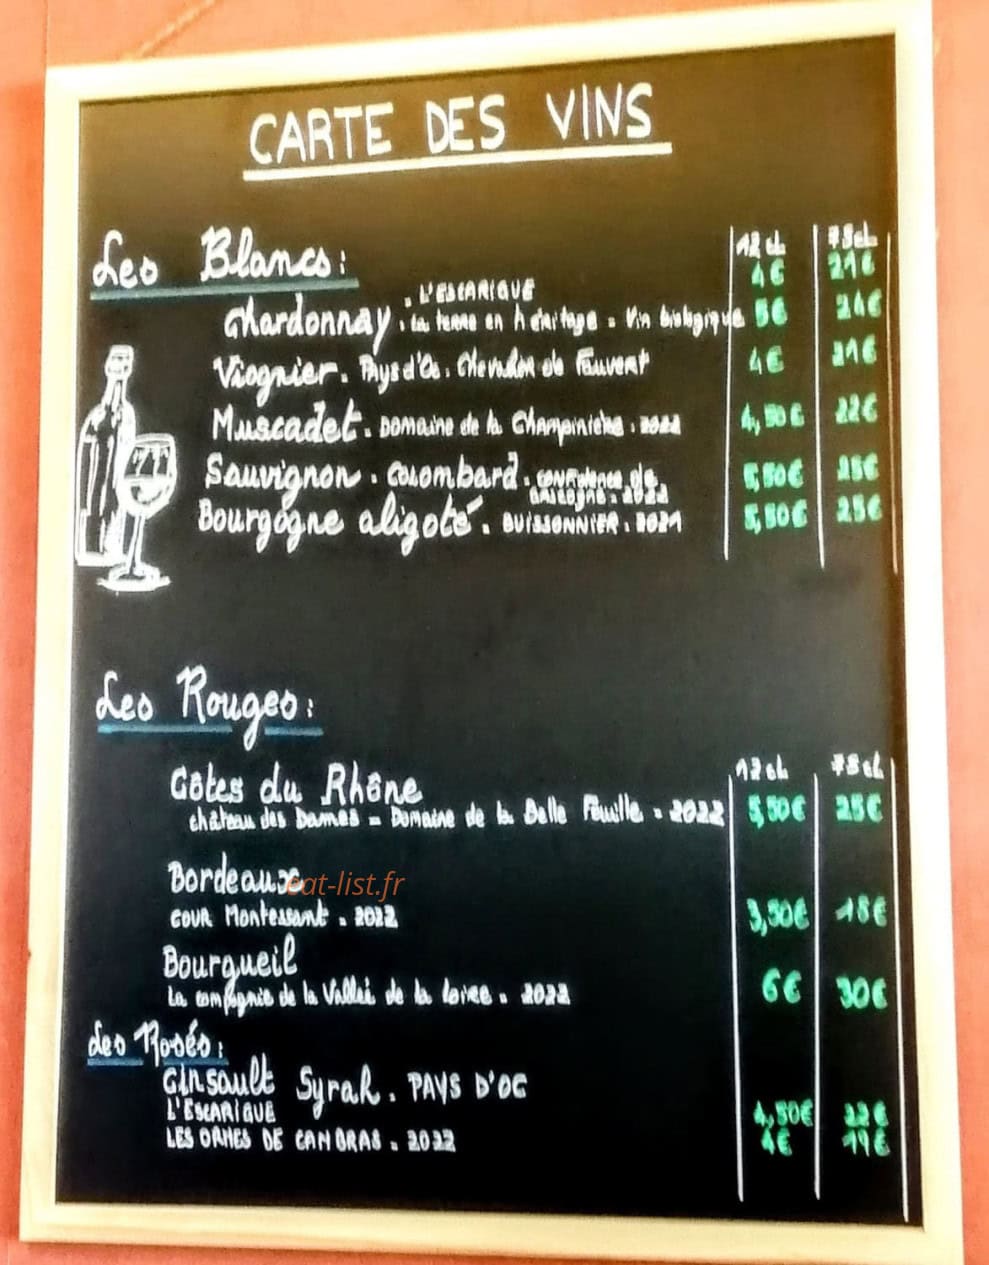 CARTE DES VINS
Les Blancs: 12 cl 75cl
. L'ESCARIQUE 4€ 21€
Chardonnay. La terre en héritage. Vin biologique 5€ 24€
Viognier. Pays d'Oc. Chevalier de Fauvert 4€ 21€
Muscadet. Domaine de la 2022 4,50€ 22€
Sauvignon. Colombard. de 5,50€ 25€
2022
Bourgogne aligoté. BUISSONNIER. 2021 5,50€ 25€
Les Rouges:
12cl 75cl
Côtes du Rhône
château des Dames = Domaine de la Belle Feuille. 2022 5,50€ 25€
Bordeaux
eat-list.fr
COUR Montessant. 2022 3,50€ 18€
Bourgueil
La compagnie de la Vallée de la Loire. 2022 6€ 30€
Les Rosés:
Cinsault Syrah. PAYS D'OC
L'ESCARIQUE 4,50€ 22€
LES ORMES DE CAMBRAS. 2022 4€ 19€